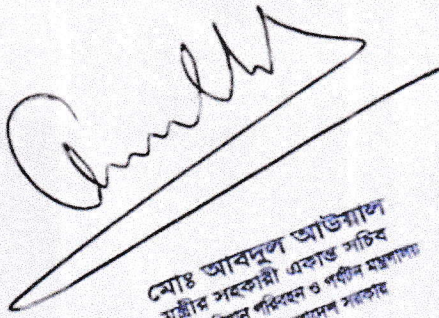 মোঃ আবদুল আউয়াল
মন্ত্রীর সহকারী একান্ত সচিব
বিমান পরিবহন ও পর্যটন মন্ত্রণালয়
সরকার